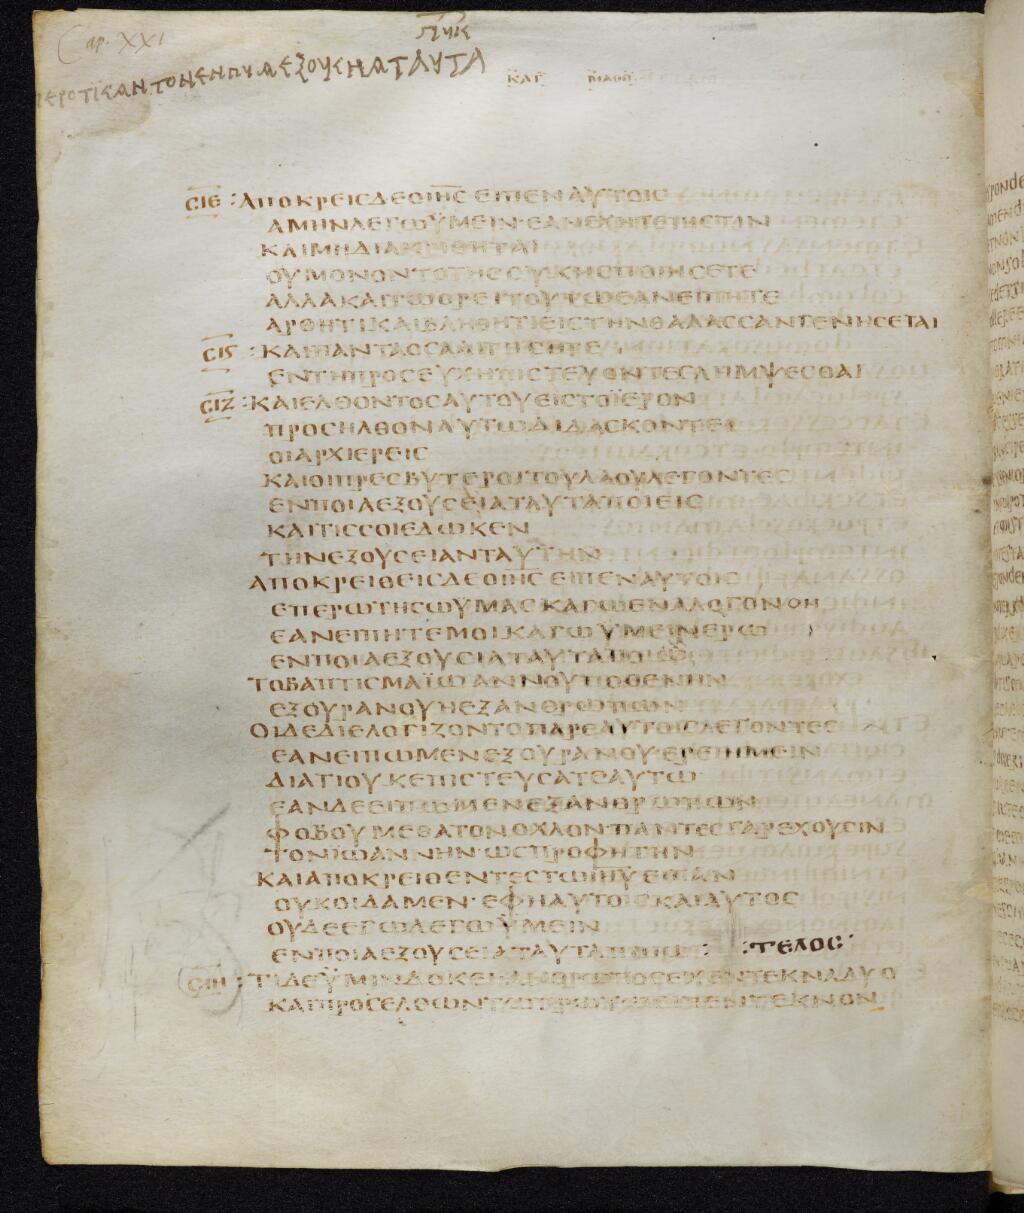 Cap. XXI
ΚΑΤ ΜΑΘΘ
ϹΙΕ : ΑΠΟΚΡΕΙϹΔΕΟΙΗϹ ΕΙΠΕΝ ΑΥΤΟΙϹ
ΑΜΗΝΛΕΓΩΫΜΕΙΝ·ΕΑΝΕΧΗΤΕΠΙϹΤΙΝ
ΚΑΙΜΗΔΙΑΚΡΙΘΗΤΑΙ
ΟΥΜΟΝΟΝΤΟΤΗϹϹΥΚΗϹΠΟΙΗϹΕΤΕ
ΑΛΛΑΚΑΙΤΩΟΡΕΙΤΟΥΤΩΕΑΝΕΙΠΗΤΕ
ΑΡΘΗΤΙΚΑΙΒΛΗΘΗΤΙΕΙϹΤΗΝΘΑΛΑϹϹΑΝΓΕΝΗϹΕΤΑΙ
ϹΙϚ : ΚΑΙΠΑΝΤΑΟϹΑΑΙΤΗϹΗΤΕ
ΕΝΤΗΠΡΟϹΕΥΧΗΠΙϹΤΕΥΟΝΤΕϹΛΗΜΨΕϹΘΑΙ
ϹΙΖ : ΚΑΙΕΛΘΟΝΤΟϹΑΥΤΟΥΕΙϹΤΟΪΕΡΟΝ
ΠΡΟϹΗΛΘΟΝΑΥΤΩΔΙΔΑϹΚΟΝΤΕΙ
ΟΙΑΡΧΙΕΡΕΙϹ
ΚΑΙΟΙΠΡΕϹΒΥΤΕΡΟΙΤΟΥΛΑΟΥΛΕΓΟΝΤΕϹ
ΕΝΠΟΙΑΕΞΟΥϹΕΙΑΤΑΥΤΑΠΟΙΕΙϹ
ΚΑΙΤΙϹϹΟΙΕΔΩΚΕΝ
ΤΗΝΕΞΟΥϹΕΙΑΝΤΑΥΤΗΝ
ΑΠΟΚΡΕΙΘΕΙϹΔΕΟΙΗϹ ΕΙΠΕΝΑΥΤΟΙϹ
ΕΠΕΡΩΤΗϹΩΫΜΑϹΚΑΓΩΕΝΑΛΟΓΟΝ
ΕΑΝΕΙΠΗΤΕΜΟΙΚΑΓΩΫΜΕΙΝΕΡΩ
ΕΝΠΟΙΑΕΞΟΥϹΙΑΤΑΥΤΑΠΟΙΩ
ΤΟΒΑΠΤΙϹΜΑΪΩΑΝΝΟΥΠΟΘΕΝΗΝ
ΕΞΟΥΡΑΝΟΥΗΕΞΑΝΘΡΩΠΩΝ
ΟΙΔΕΔΙΕΛΟΓΙΖΟΝΤΟΠΑΡΕΑΥΤΟΙϹΛΕΓΟΝΤΕϹ
ΕΑΝΕΙΠΩΜΕΝΕΞΟΥΡΑΝΟΥ·ΕΡΕΙΗΜΕΙΝ
ΔΙΑΤΙΟΥΚΕΠΙϹΤΕΥϹΑΤΕΑΥΤΩ
ΕΑΝΔΕΕΙΠΩΜΕΝΕΞΑΝΘΡΩΠΩΝ
ΦΟΒΟΥΜΕΘΑΤΟΝΟΧΛΟΝ·ΠΑΝΤΕϹΓΑΡΕΧΟΥϹΙΝ
ΤΟΝΪΩΑΝΝΗΝ·ΩϹΠΡΟΦΗΤΗΝ
ΚΑΙΑΠΟΚΡΕΙΘΕΝΤΕϹΤΩΙΗΥΕΙΠΑΝ
ΟΥΚΟΙΔΑΜΕΝ·ΕΦΗΑΥΤΟΙϹΚΑΙΑΥΤΟϹ
ΟΥΔΕΕΓΩΛΕΓΩΫΜΕΙΝ
ΕΝΠΟΙΑΕΞΟΥϹΕΙΑΤΑΥΤΑΠΟΙΩ : :ΤΕΛΟϹ:
ϹΙΗ : ΤΙΔΕΫΜΙΝΔΟΚΕΙ·ΑΝΘΡΩΠΟϹΕΙΧΕΝΤΕΚΝΑΔΥΟ
ΚΑΙΠΡΟϹΕΛΘΩΝΤΩΠΡΩΤΩΕΙΠΕΝΤΕΚΝΟΝ